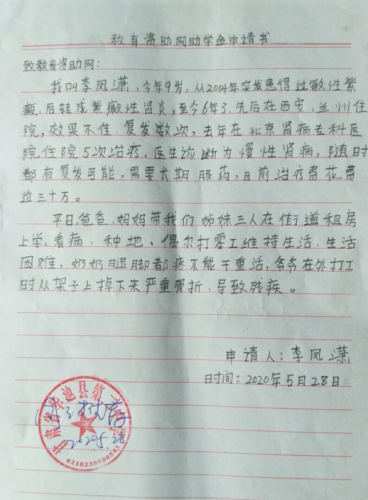 教育资助网助学金申请书
致教育资助网:
我叫李凤潇,今年9岁,从2014年突发患得过敏性紫
癜,后转成紫癜性肾炎,至今6年了,先后在西安,兰州住
院,效果不佳,复发数次,去年在北京肾病专科医
院住院5次治疗,医生诊断为慢性肾病,随时
都有复发可能,需要长期服药,目前治疗费花费
过三十万。
平日,爸爸,妈妈带我们姊妹三人在街道租房
上学,看病,种地,偶尔打零工维持生活,生活
困难,奶奶腿脚都疼不能干重活,爷爷在外打工
时从架子上掉下来严重骨折,导致残疾。
申请人:李凤潇
时间:2020年5月28日
甘肃省华池县第
2020.5.28